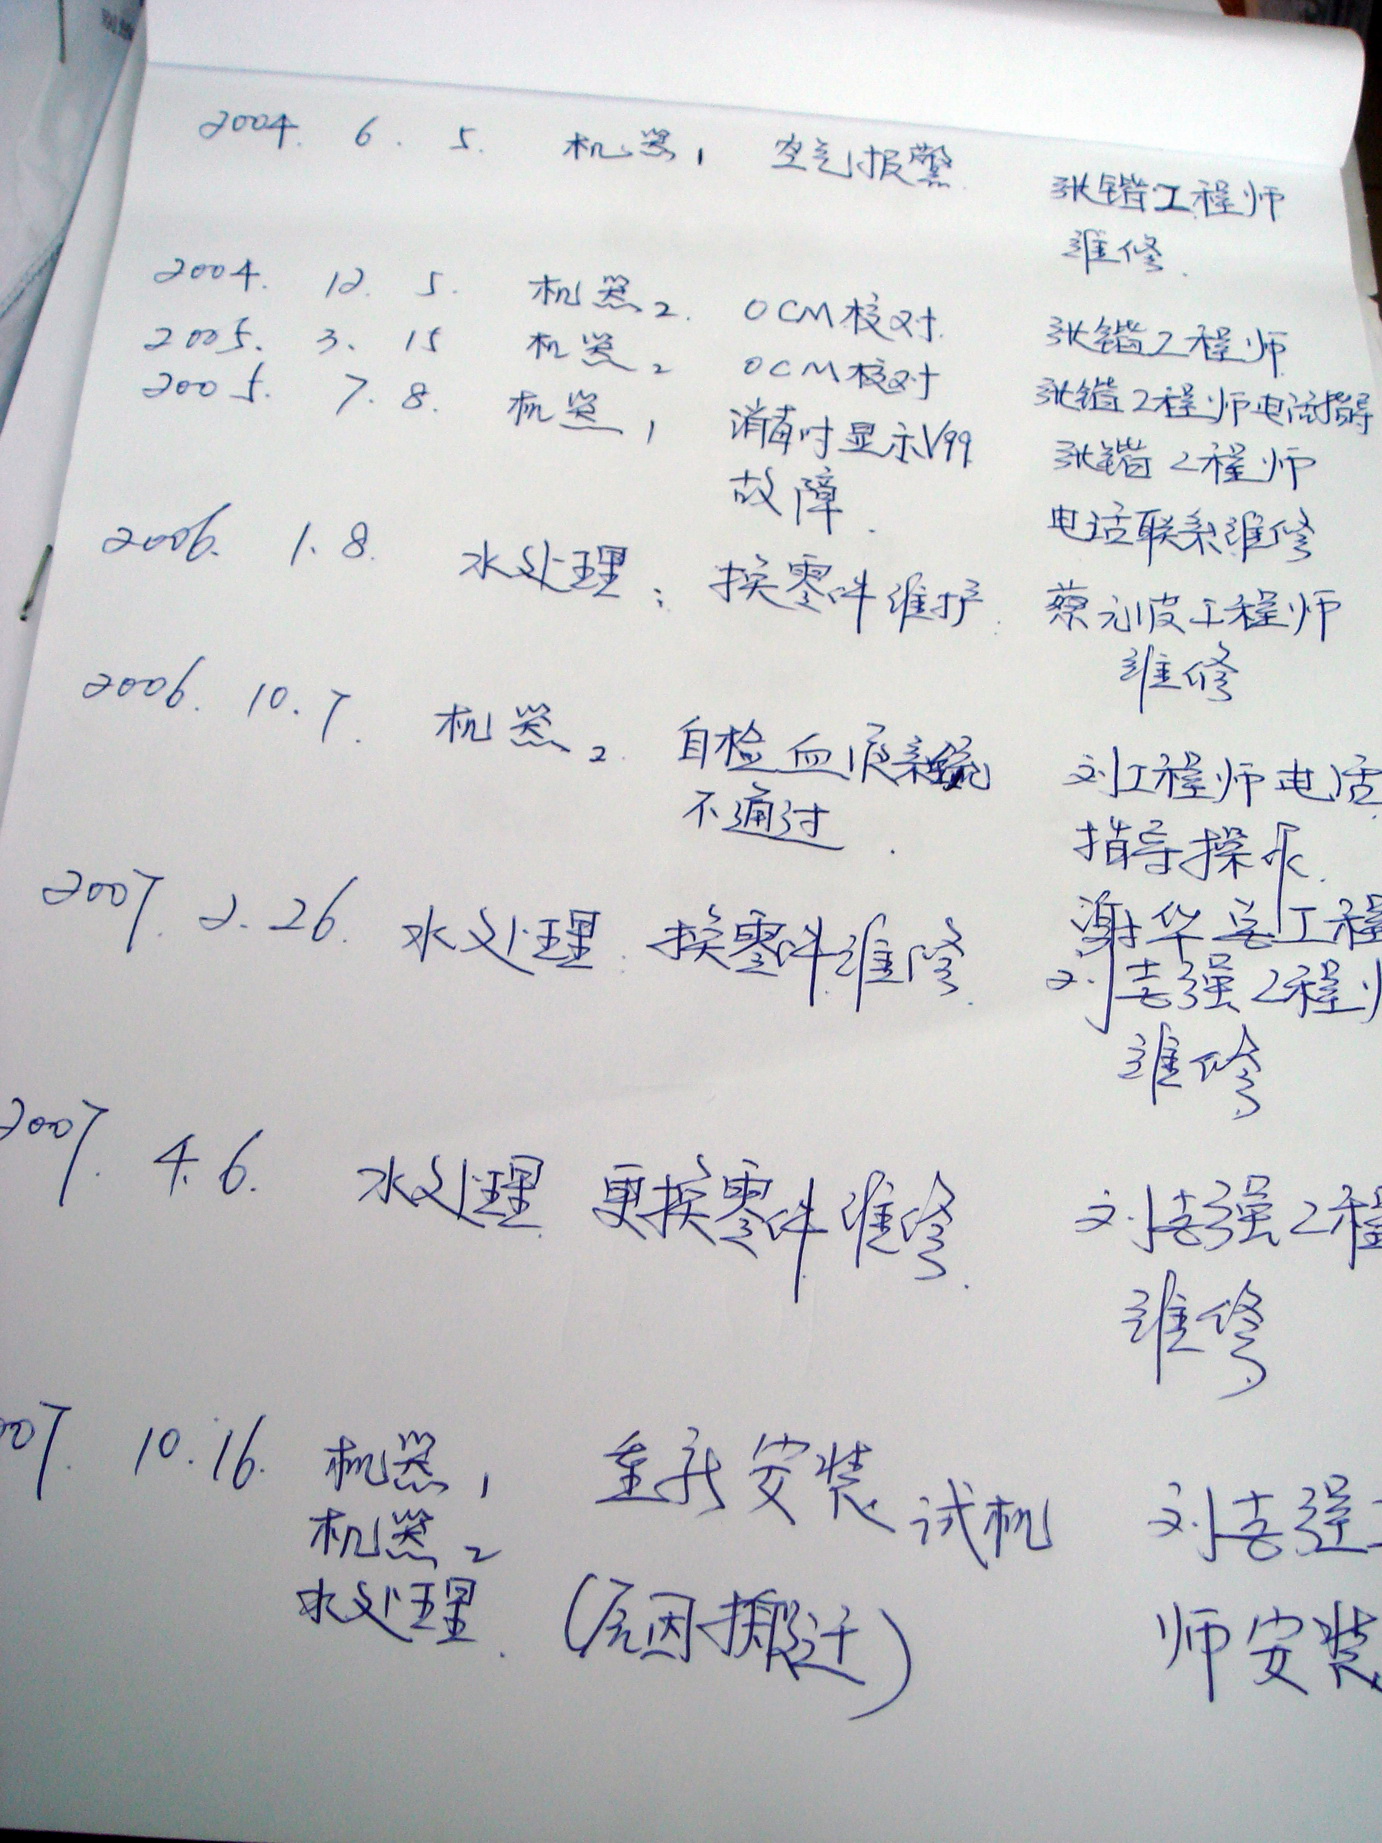 2004. 6. 5. 机器1 空气报警 张锴工程师
维修.
2004. 12. 5. 机器2. OCM校对. 张锴工程师
2005. 3. 15 机器2 OCM校对 张锴工程师电话指导
2005. 7. 8. 机器1 消毒时显示V99 张锴工程师
故障. 电话联系维修
2006. 1. 8. 水处理: 换零件维护. 蔡元波工程师
维修
2006. 10. 7. 机器2. 自检血液系统 刘工程师电话
不通过. 指导操作.
2007. 2. 26. 水处理. 换零件维修. 谢华 工程
刘志强工程师
维修
2007. 4. 6. 水处理. 更换零件维修. 刘志强工程
维修
007. 10. 16. 机器1 重新安装试机 刘志强工
机器2
水处理. (原因搬迁) 师安装